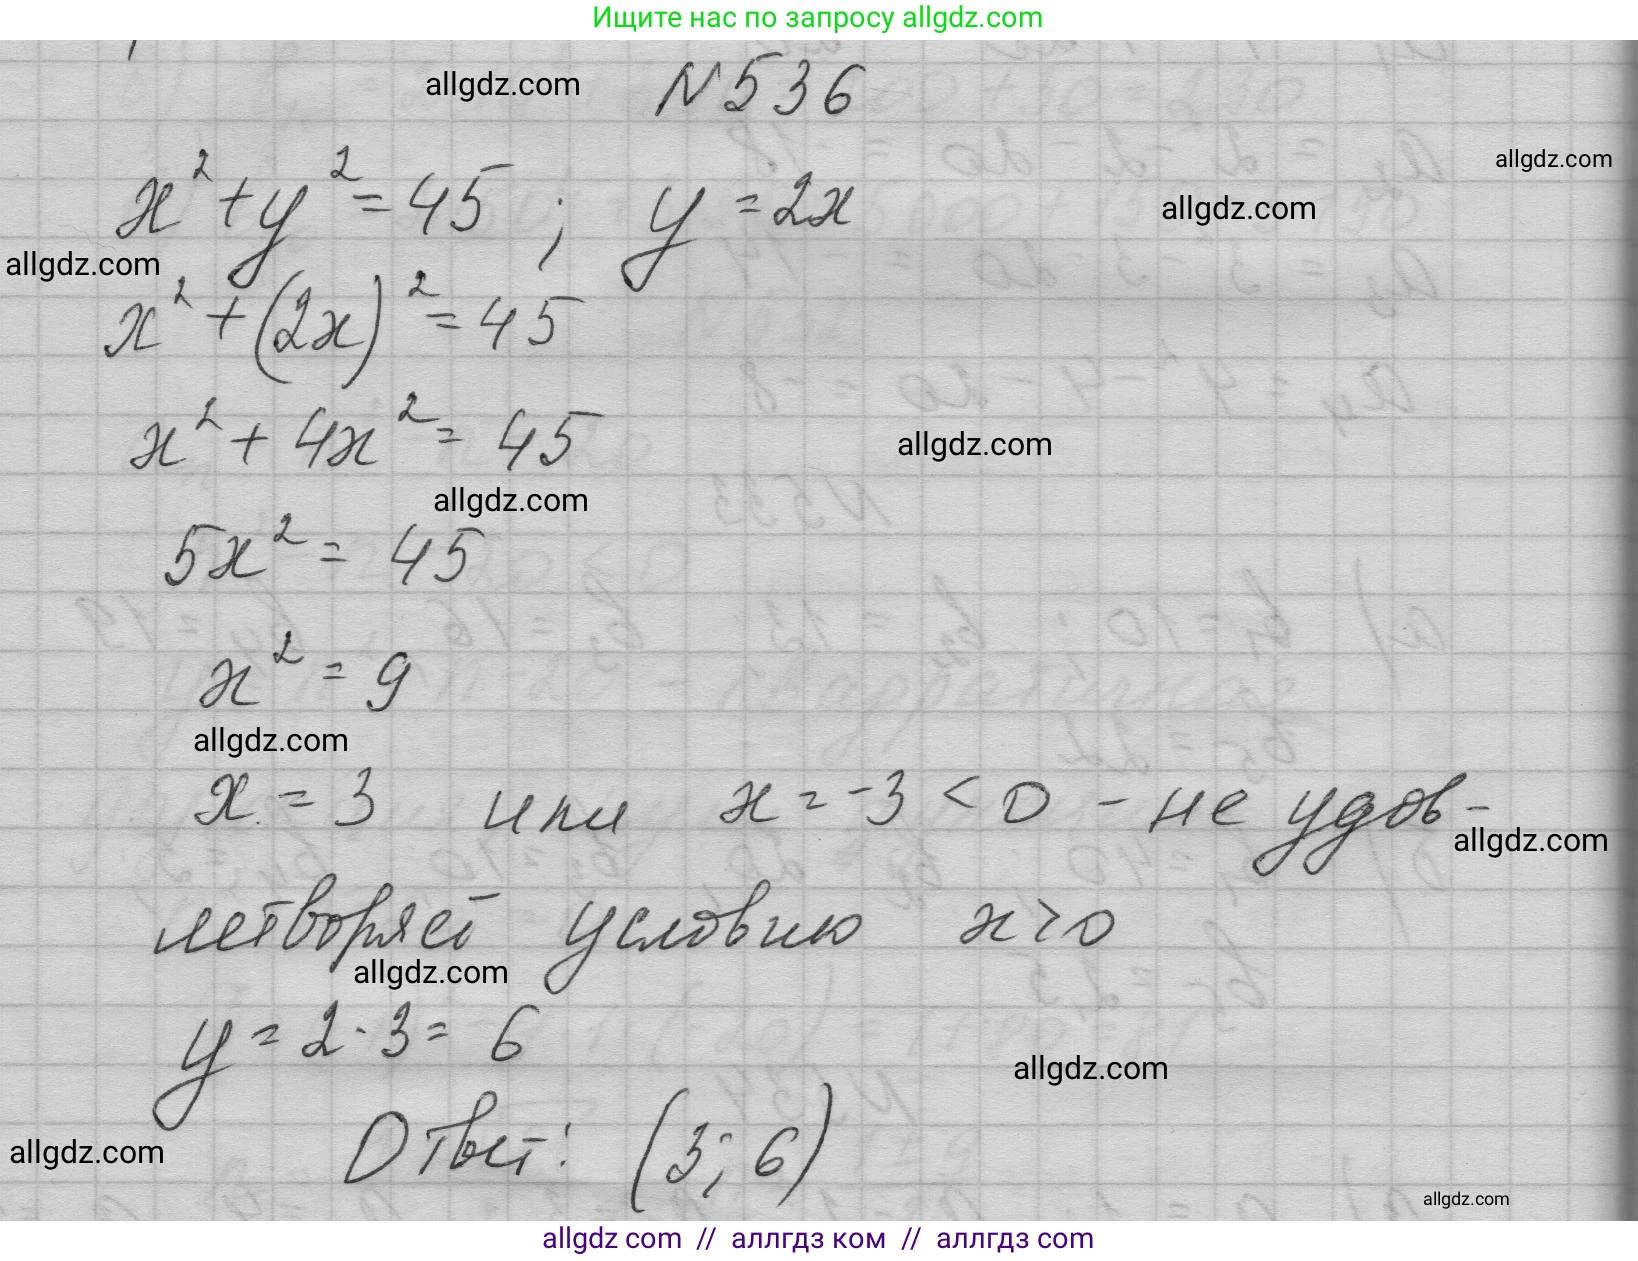 Ищите нас по запросу allgdz.com
allgdz.com
N 536
allgdz.com
x² + y² = 45 ; y = 2x
allgdz.com
allgdz.com
x² + (2x)² = 45
x² + 4x² = 45
allgdz.com
allgdz.com
5x² = 45
x² = 9
allgdz.com
x = 3 или x = -3 < 0 - не удов-
allgdz.com
летворяет условию x > 0
allgdz.com
y = 2 · 3 = 6
allgdz.com
Ответ: (3; 6)
allgdz.com
allgdz.com
allgdz com // аллгдз ком // аллгдз com